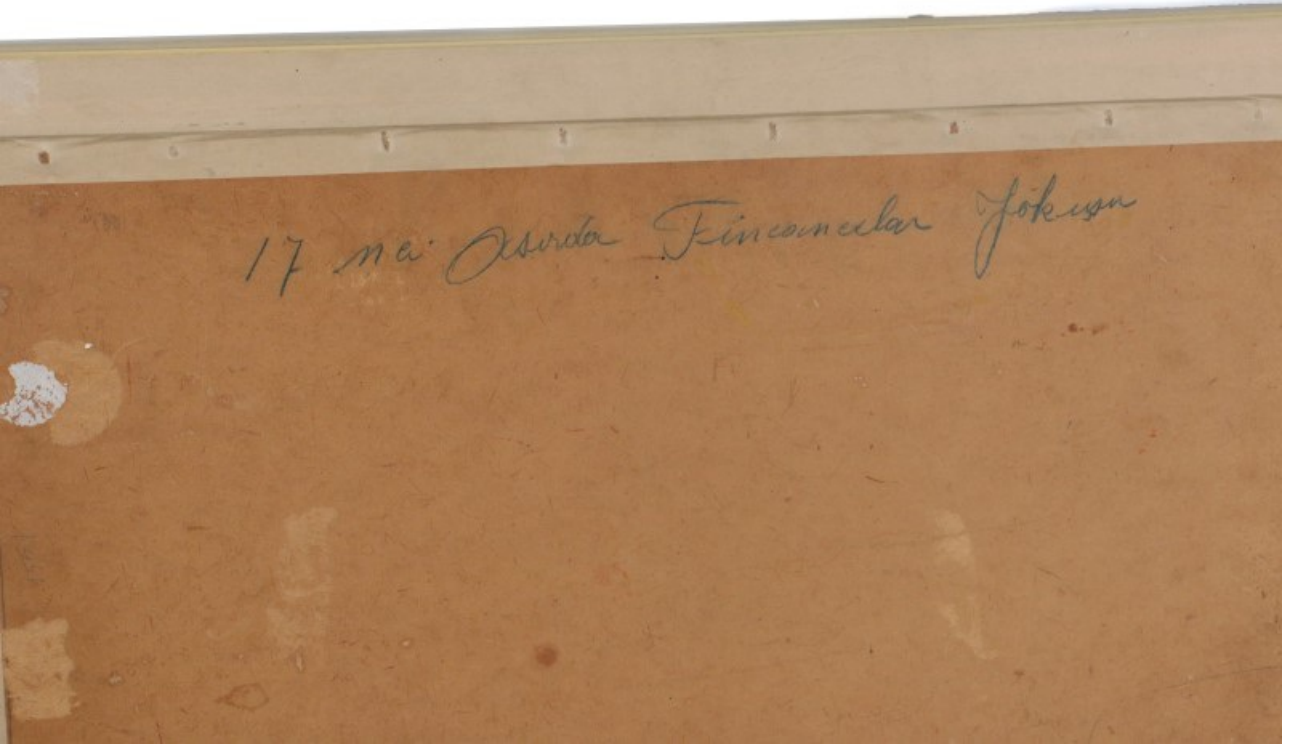 17 nci Asırda Fincancılar Yokuşu